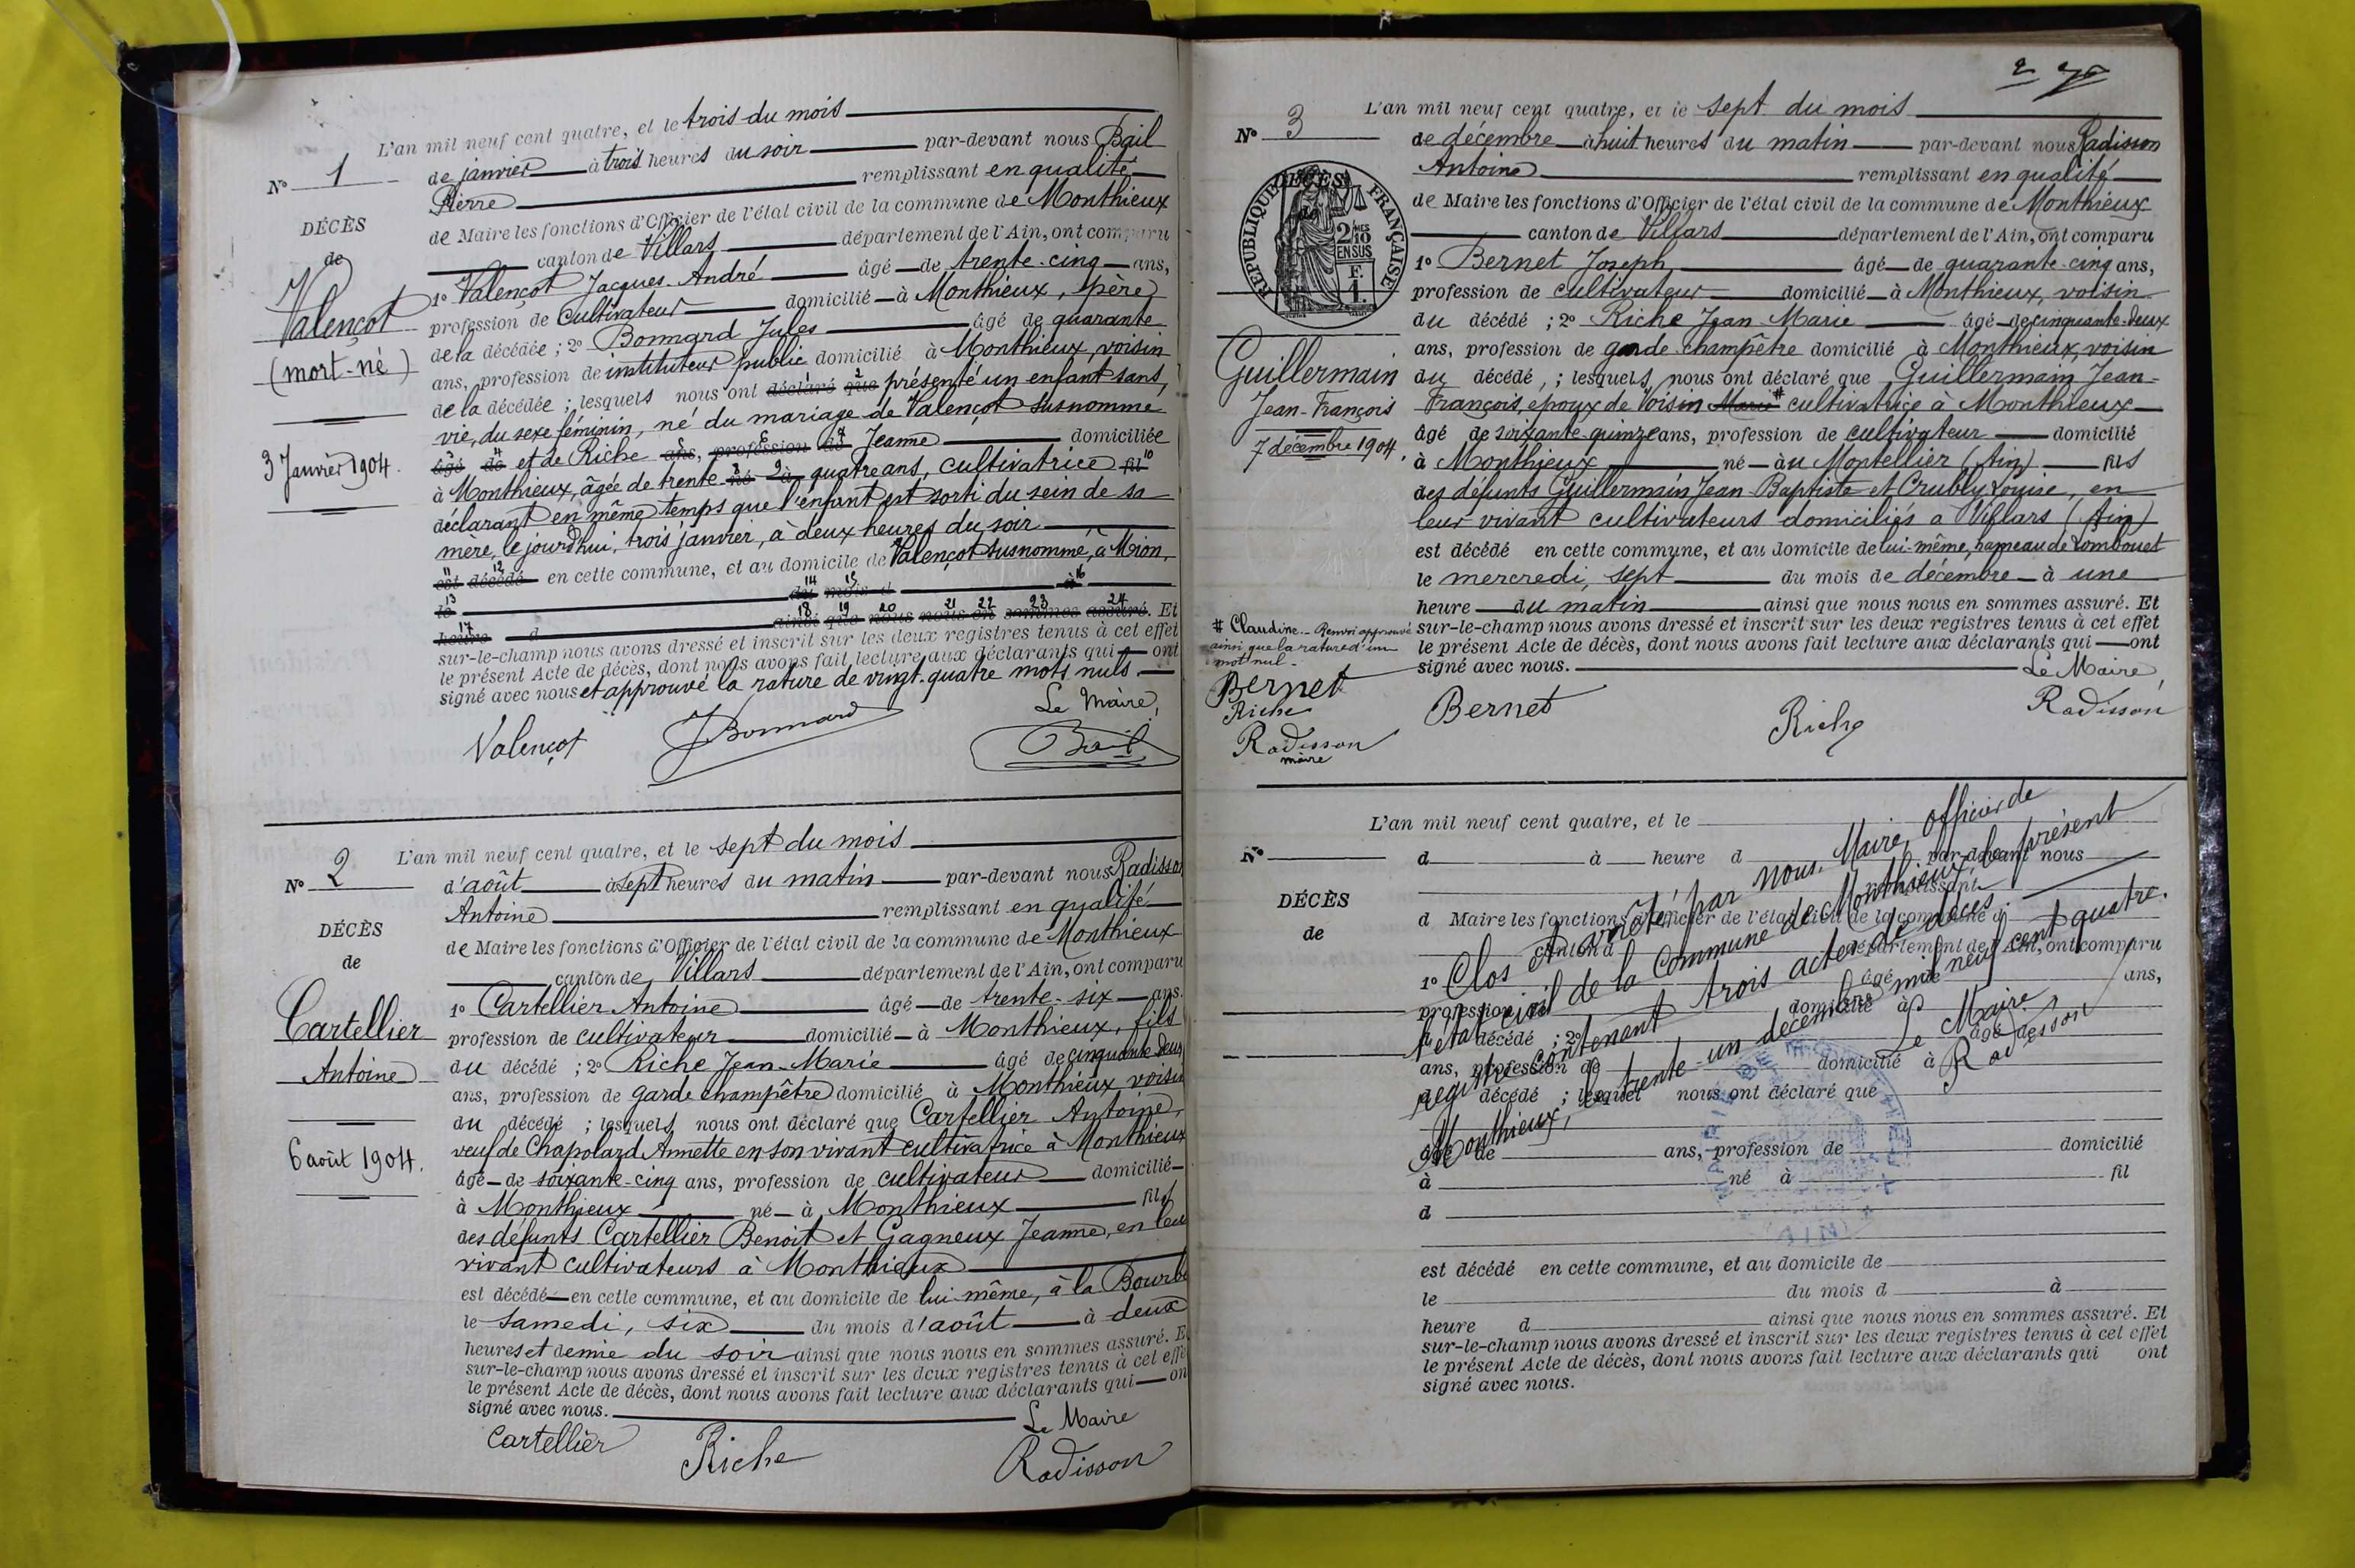 L'an mil neuf cent quatre, et le trois du mois
N° 1
de janvier à trois heures du soir par-devant nous Bail
Pierre remplissant en qualité
DÉCÈS
de Maire les fonctions d'Officier de l'état civil de la commune de Monthieux
de
canton de Villars département de l'Ain, ont comparu
Valençot
(mort-né)
3 Janvier 1904.
1° Valençot Jacques-André âgé de trente-cinq ans,
profession de cultivateur domicilié à Monthieux, père
de la décédée ; 2° Bonnard Jules âgé de quarante
ans, profession de instituteur public domicilié à Monthieux, voisin
de la décédée ; lesquels nous ont déclaré que présenté un enfant sans
vie, du sexe féminin, né du mariage de Valençot susnommé
âgé de et de Riche ans, profession de Jeanne domiciliée
à Monthieux, âgée de trente-né à quatre ans, cultivatrice fil
déclarant en même temps que l'enfant est sorti du sein de sa
mère, le jourd'hui, trois janvier, à deux heures du soir
est décédé en cette commune, et au domicile de Valençot susnommé, à Mion,
le du mois d à
heure d ainsi que nous nous en sommes assuré. Et
sur-le-champ nous avons dressé et inscrit sur les deux registres tenus à cet effet
le présent Acte de décès, dont nous avons fait lecture aux déclarants qui ont
signé avec nous et approuvé la rature de vingt-quatre mots nuls.
Le Maire,
Valençot JBonnard Bail
L'an mil neuf cent quatre, et le sept du mois
N° 2
d'août à sept heures du matin par-devant nous Radisson
Antoine remplissant en qualité
DÉCÈS
de Maire les fonctions d'Officier de l'état civil de la commune de Monthieux
de
canton de Villars département de l'Ain, ont comparu
Cartellier
Antoine
6 août 1904.
1° Cartellier Antoine âgé de trente-six ans.
profession de cultivateur domicilié à Monthieux, fils
du décédé ; 2° Riche Jean-Marie âgé de cinquante deux
ans, profession de garde champêtre domicilié à Monthieux, voisin
du décédé ; lesquels nous ont déclaré que Cartellier Antoine,
veuf de Chapolard Annette en son vivant cultivatrice à Monthieux
âgé de soixante-cinq ans, profession de cultivateur domicilié
à Monthieux né à Monthieux fils
des défunts Cartellier Benoit et Gagneux Jeanne, en leu
vivant cultivateurs à Monthieux
est décédé en cette commune, et au domicile de lui-même, à la Bourbe
le samedi, six du mois d'août à deux
heures et demie du soir ainsi que nous nous en sommes assuré. Et
sur-le-champ nous avons dressé et inscrit sur les deux registres tenus à cet effe
le présent Acte de décès, dont nous avons fait lecture aux déclarants qui on
signé avec nous.
Le Maire
Cartellier Riche Radisson
2
L'an mil neuf cent quatre, et le sept du mois
N° 3
de décembre à huit heures du matin par-devant nous Radisson
Antoine remplissant en qualité
DÉCÈS
de
RÉPUBLIQUE FRANÇAISE
2 MES
10
EN SUS
F.
1.
de Maire les fonctions d'Officier de l'état civil de la commune de Monthieux
canton de Villars département de l'Ain, ont comparu
1° Bernet Joseph âgé de quarante-cinq ans,
profession de cultivateur domicilié à Monthieux, voisin
du décédé ; 2° Riche Jean-Marie âgé de cinquante-deux
ans, profession de garde-champêtre domicilié à Monthieux, voisin
Guillermain
Jean-François
7 décembre 1904.
du décédé, ; lesquels nous ont déclaré que Guillermain Jean-
François, époux de Voisin Marie # cultivatrice à Monthieux
âgé de soixante-quinze ans, profession de cultivateur domicilié
à Monthieux né au Montellier (Ain) fils
des défunts Guillermain Jean-Baptiste et Crubly Louise, en
leur vivant cultivateurs domiciliés à Villars (Ain)
est décédé en cette commune, et au domicile de lui-même, hameau de Lombouet
le mercredi, sept du mois de décembre à une
heure du matin ainsi que nous nous en sommes assuré. Et
sur-le-champ nous avons dressé et inscrit sur les deux registres tenus à cet effet
le présent Acte de décès, dont nous avons fait lecture aux déclarants qui ont
signé avec nous.
# Claudine. - Renvoi approuvé
ainsi que la rature d'un
mot nul.
Bernet
Riche
Radisson
maire
Le Maire,
Bernet Riche Radisson
L'an mil neuf cent quatre, et le
N°
d à heure d par-devant nous
remplissant
DÉCÈS
de
d Maire les fonctions d'Officier de l'état civil de la commune d
canton d département de l'Ain, ont comparu
1° âgé ans,
profession de domicilié à
d décédé ; 2° âgé de
ans, profession de domicilié à
d décédé ; lesquel nous ont déclaré que
âgé de ans, profession de domicilié
à né à fil
d
est décédé en cette commune, et au domicile de
le du mois d à
heure d ainsi que nous nous en sommes assuré. Et
sur-le-champ nous avons dressé et inscrit sur les deux registres tenus à cet effet
le présent Acte de décès, dont nous avons fait lecture aux déclarants qui ont
signé avec nous.
Clos et arrêté par nous, Maire, Officier de
l'état civil de la Commune de Monthieux, le présent
registre contenant trois actes de décès.
Monthieux, le trente-un décembre mil neuf cent quatre.
Le Maire
Radisson
MAIRIE DE MONTHIEUX
(AIN)